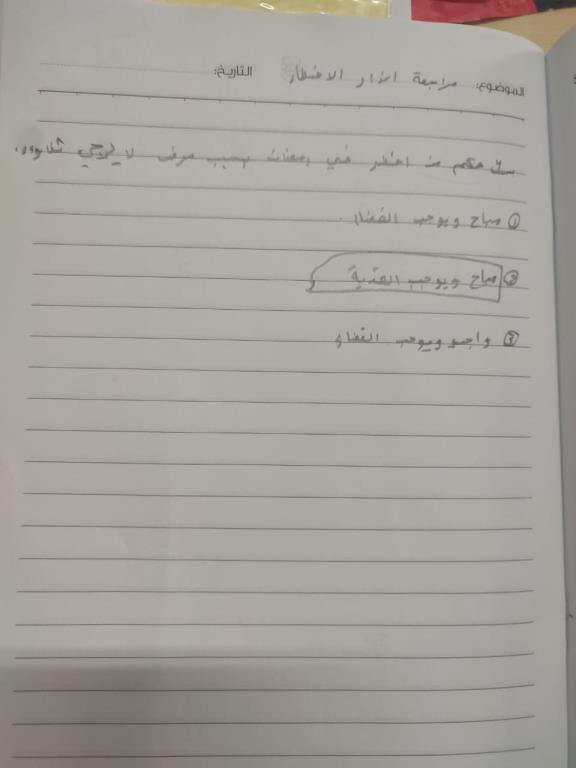 الموضوع: مراجعة اعذار الافطار التاريخ:
س/ حكم من افطر في رمضان بسبب مرض لا يرجي شفاؤه.
① مباح ويوجب القضاء.
② مباح ويوجب الفدية
③ واجب ويوجب القضاء